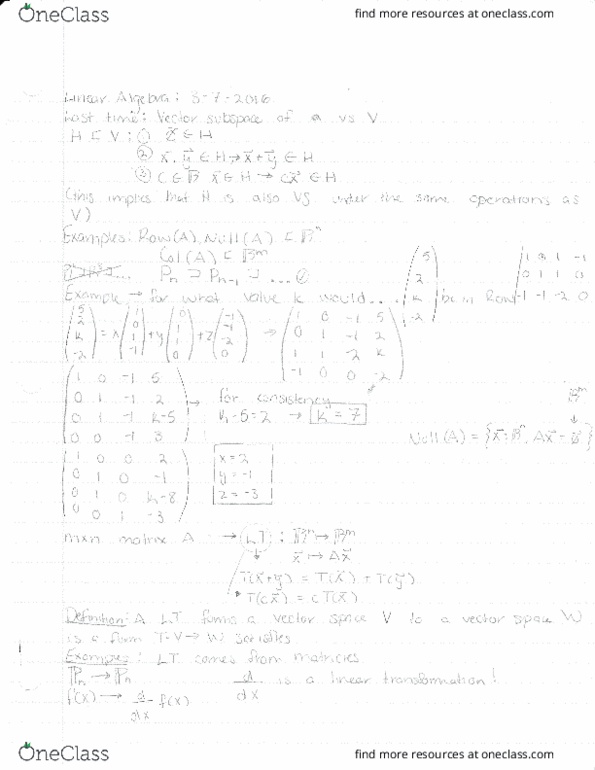 OneClass
find more resources at oneclass.com
Linear Algebra: 3-7-2016
Last time: Vector subspace of a vs V
H ⊆ V: ① 0⃗ ∈ H
② x⃗, y⃗ ∈ H → x⃗+y⃗ ∈ H
③ c ∈ ℝ x⃗ ∈ H → cx⃗ ∈ H
(this implies that H is also VS under the same operations as
V)
Examples: Row(A), Null(A) ⊆ ℝⁿ
Col(A) ⊆ ℝᵐ
Pₙ ⊇ Pₙ₋₁ ⊇ ...
Example → for what value k would... (5 2 k -2) be in Row (1 0 1 -1
0 1 1 0
-1 -1 -2 0)
(5 2 k -2) = x(1 0 1 -1) + y(0 1 1 0) + z(-1 -1 -2 0) → (1 0 -1 5
0 1 -1 2
1 1 -2 k
-1 0 0 -2)
(1 0 -1 5
0 1 -1 2
0 1 -1 k-5
0 0 -1 3)
→ for consistency
k-5=2 → k=7
ℝᵐ
Null(A) = {x⃗:ℝⁿ, Ax⃗ = 0⃗}
(1 0 0 2
0 1 0 -1
0 1 0 k-8
0 0 1 -3)
x=2
y=-1
z=-3
mxn matrix A → LT: ℝⁿ → ℝᵐ
x⃗ ↦ Ax⃗
T(x⃗+y⃗) = T(x⃗) + T(y⃗)
T(cx⃗) = cT(x⃗)
Definition: A LT form a vector space V to a vector space W
is a form T-V→W satisfies
Examples: LT comes from matricies
Pₙ → Pₙ d/dx is a linear transformation!
f(x) → d/dx f(x)
OneClass
find more resources at oneclass.com